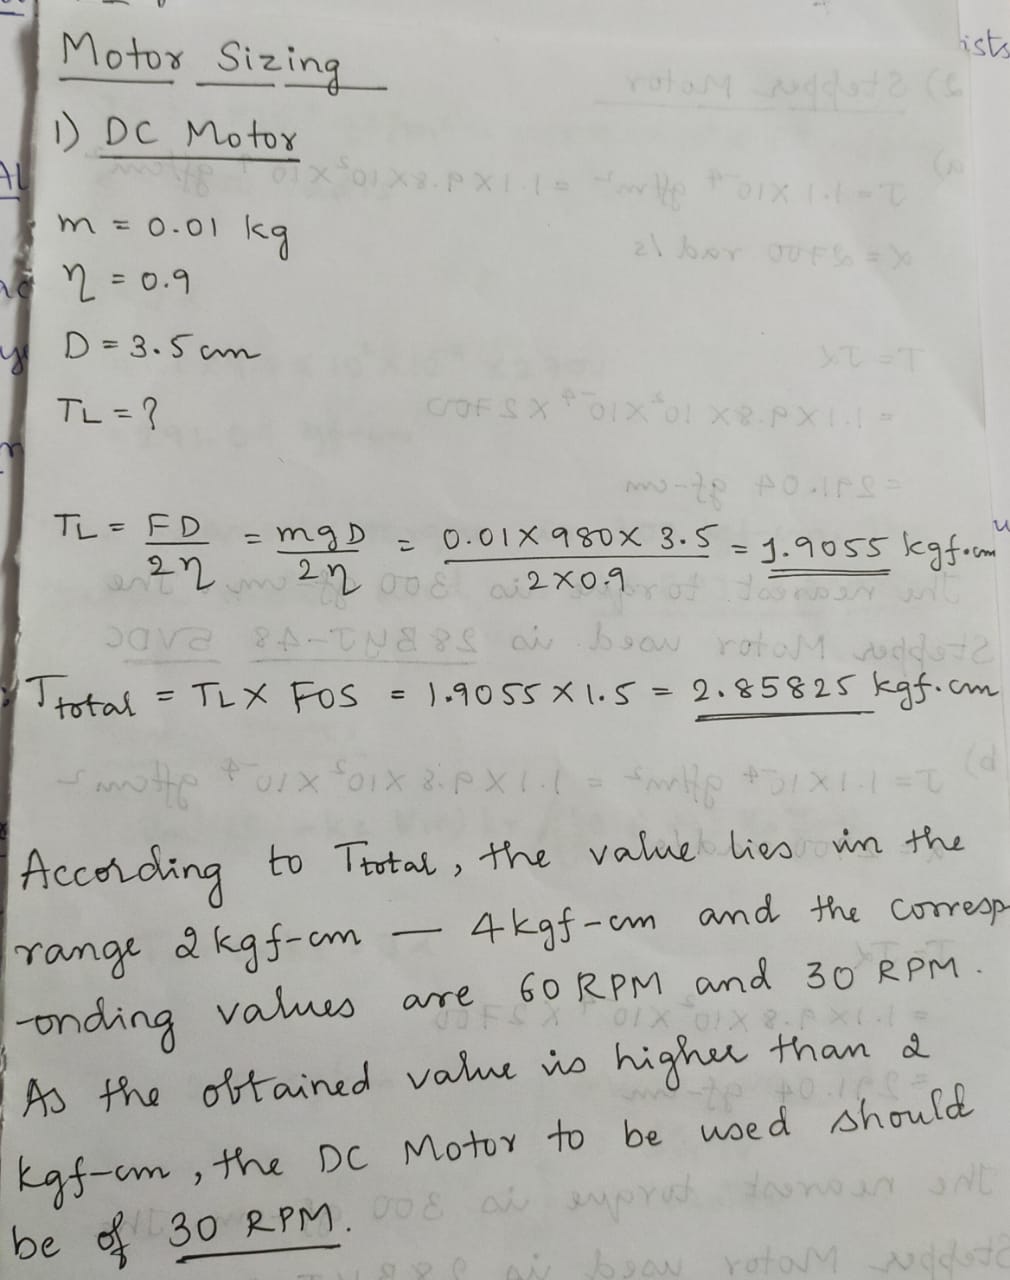 Motor Sizing
1) DC Motor
m = 0.01 kg
η = 0.9
D = 3.5 cm
TL = ?
TL = FD/2η = mgD/2η = 0.01 X 980 X 3.5/2 X 0.9 = 1.9055 kgf.cm
Ttotal = TL X FOS = 1.9055 X 1.5 = 2.85825 kgf.cm
According to Ttotal, the value lies in the
range 2 kgf-cm — 4 kgf-cm and the corresp
-onding values are 60 RPM and 30 RPM.
As the obtained value is higher than 2
kgf-cm, the DC Motor to be used should
be of 30 RPM.